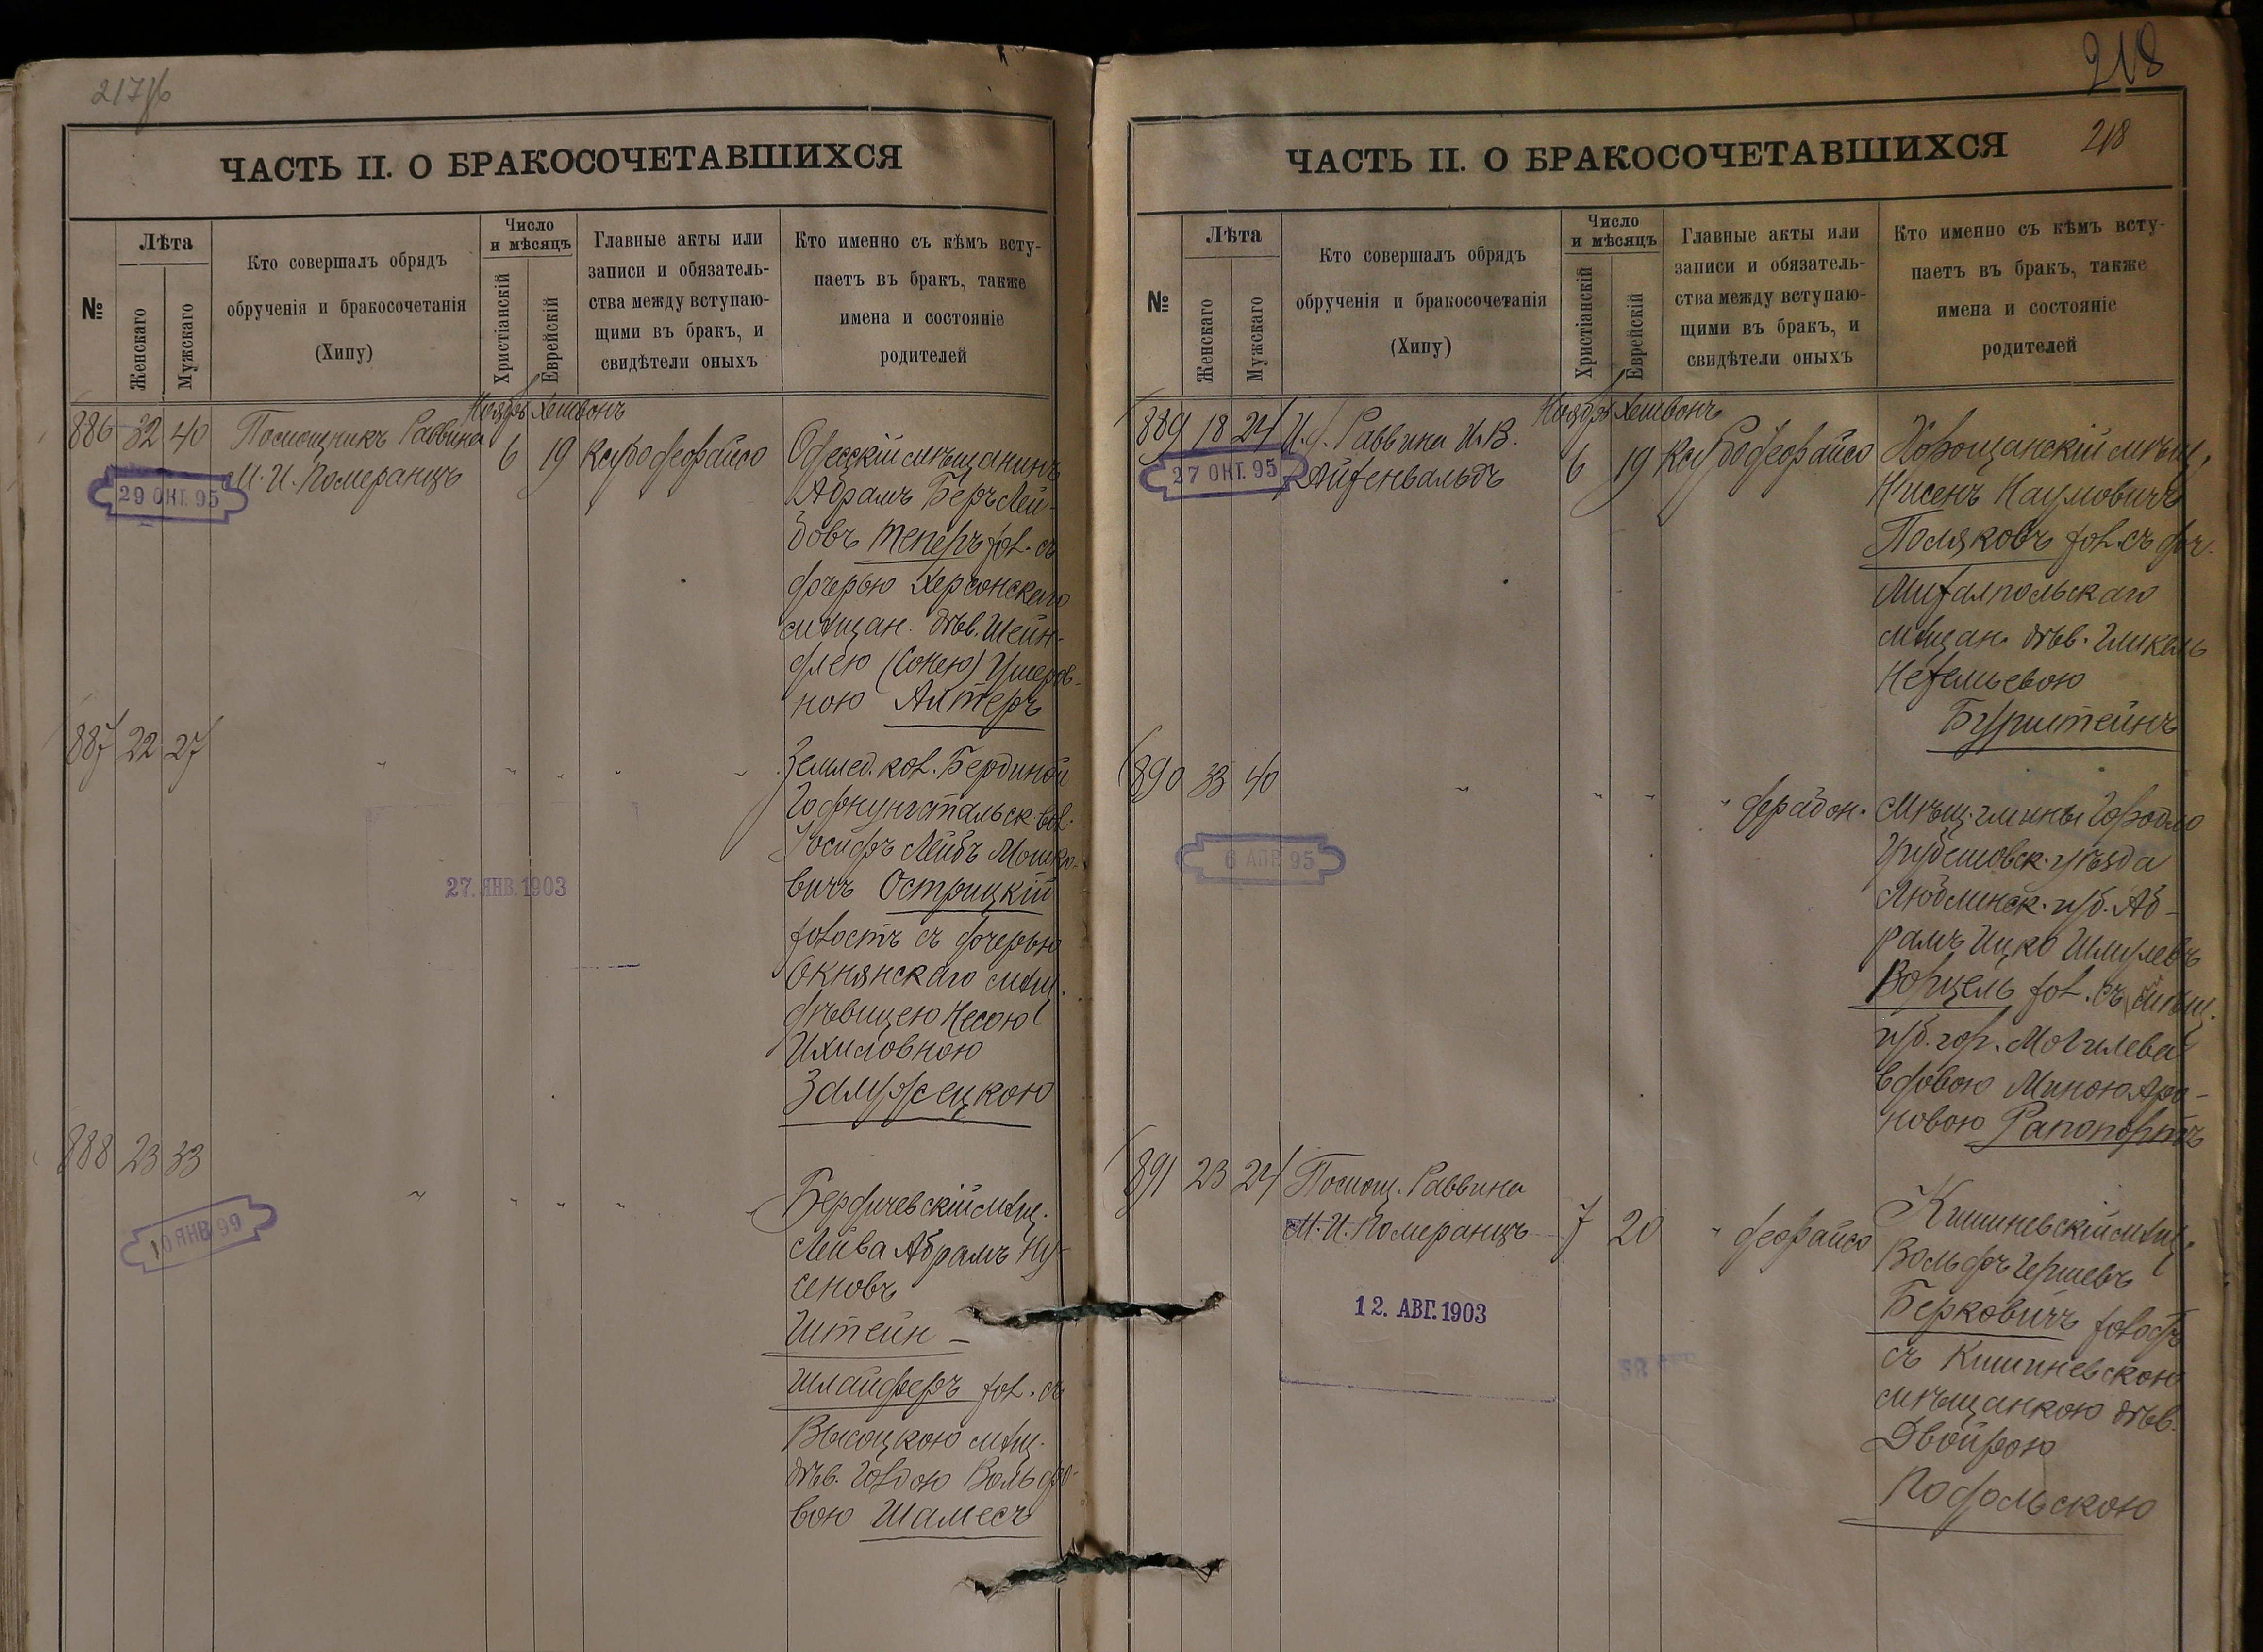 217 об
ЧАСТЬ II. О БРАКОСОЧЕТАВШИХСЯ
№
Лѣта
Женскаго
Мужскаго
Кто совершалъ обрядъ
обрученія и бракосочетанія
(Хипу)
Число
и мѣсяцъ
Христіанскій
Еврейскій
Главные акты или
записи и обязатель-
ства между вступаю-
щими въ бракъ, и
свидѣтели оныхъ
Кто именно съ кѣмъ всту-
паетъ въ бракъ, также
имена и состояніе
родителей
Ноябрь Хешвонъ
886 32 40 Помощникъ Раввина
М. И. Померанцъ
6 19 Ксубо деорайсо
29 ОКТ. 95
Одесскій мѣщанинъ
Абрамъ Беръ Лей-
бовъ Теперъ хол. съ
дочерью Херсонскаго
мѣщан. дѣв. Шейн-
длею (Сонею) Ушеров-
ною Алтеръ
887 22 27 " " " " "
27. ЯНВ. 1903
Землед. кол. Бердиной
Гофнунгстальск. вол.
Іосифъ Лейбъ Мошко-
вичъ Острицкій
холостъ съ дочерью
Окнянскаго мѣщ.
дѣвицею Несою
Ихиловною
Замужецкою
888 23 33 " " " " "
10 ЯНВ 99
Бердичевскій мѣщ.
Лейва Абрамъ Ну-
сеновъ
Штейн-
шлайферъ хол. съ
Высоцкою мѣщ.
дѣв. Голдою Вольфо-
вою Шамесъ
218
218
ЧАСТЬ II. О БРАКОСОЧЕТАВШИХСЯ
№
Лѣта
Женскаго
Мужскаго
Кто совершалъ обрядъ
обрученія и бракосочетанія
(Хипу)
Число
и мѣсяцъ
Христіанскій
Еврейскій
Главные акты или
записи и обязатель-
ства между вступаю-
щими въ бракъ, и
свидѣтели оныхъ
Кто именно съ кѣмъ всту-
паетъ въ бракъ, также
имена и состояніе
родителей
Ноябрь Хешвонъ
889 18 24 И. д. Раввина И. В.
Айзенвальдъ
6 19 Ксубо деорайсо
27 ОКТ. 95
Хорощанскій мѣщ.
Нисенъ Наумовичъ
Поляковъ хол. съ доч.
мѣщан. дѣв. Гликель
Бурштейнъ
890 33 40 " " " " дерабон.
6 АПР 95
Мѣщ. гмины Городло
Грубешовск. уѣзда
Люблинск. губ. Аб-
рамъ Ицко Шмулевъ
Ворцель хол. съ мѣщ.
губ. гор. Могилева
вдовою Миною Аро-
новою Рапопортъ
891 23 24 Помощ. Раввина
М. И. Померанцъ
7 20 " деорайсо
12. АВГ. 1903
Кишиневскій мѣщ.
Вольфъ Гершевъ
Берковичъ холост
съ Кишиневскою
мѣщанкою дѣв.
Двойрою
Подольскою